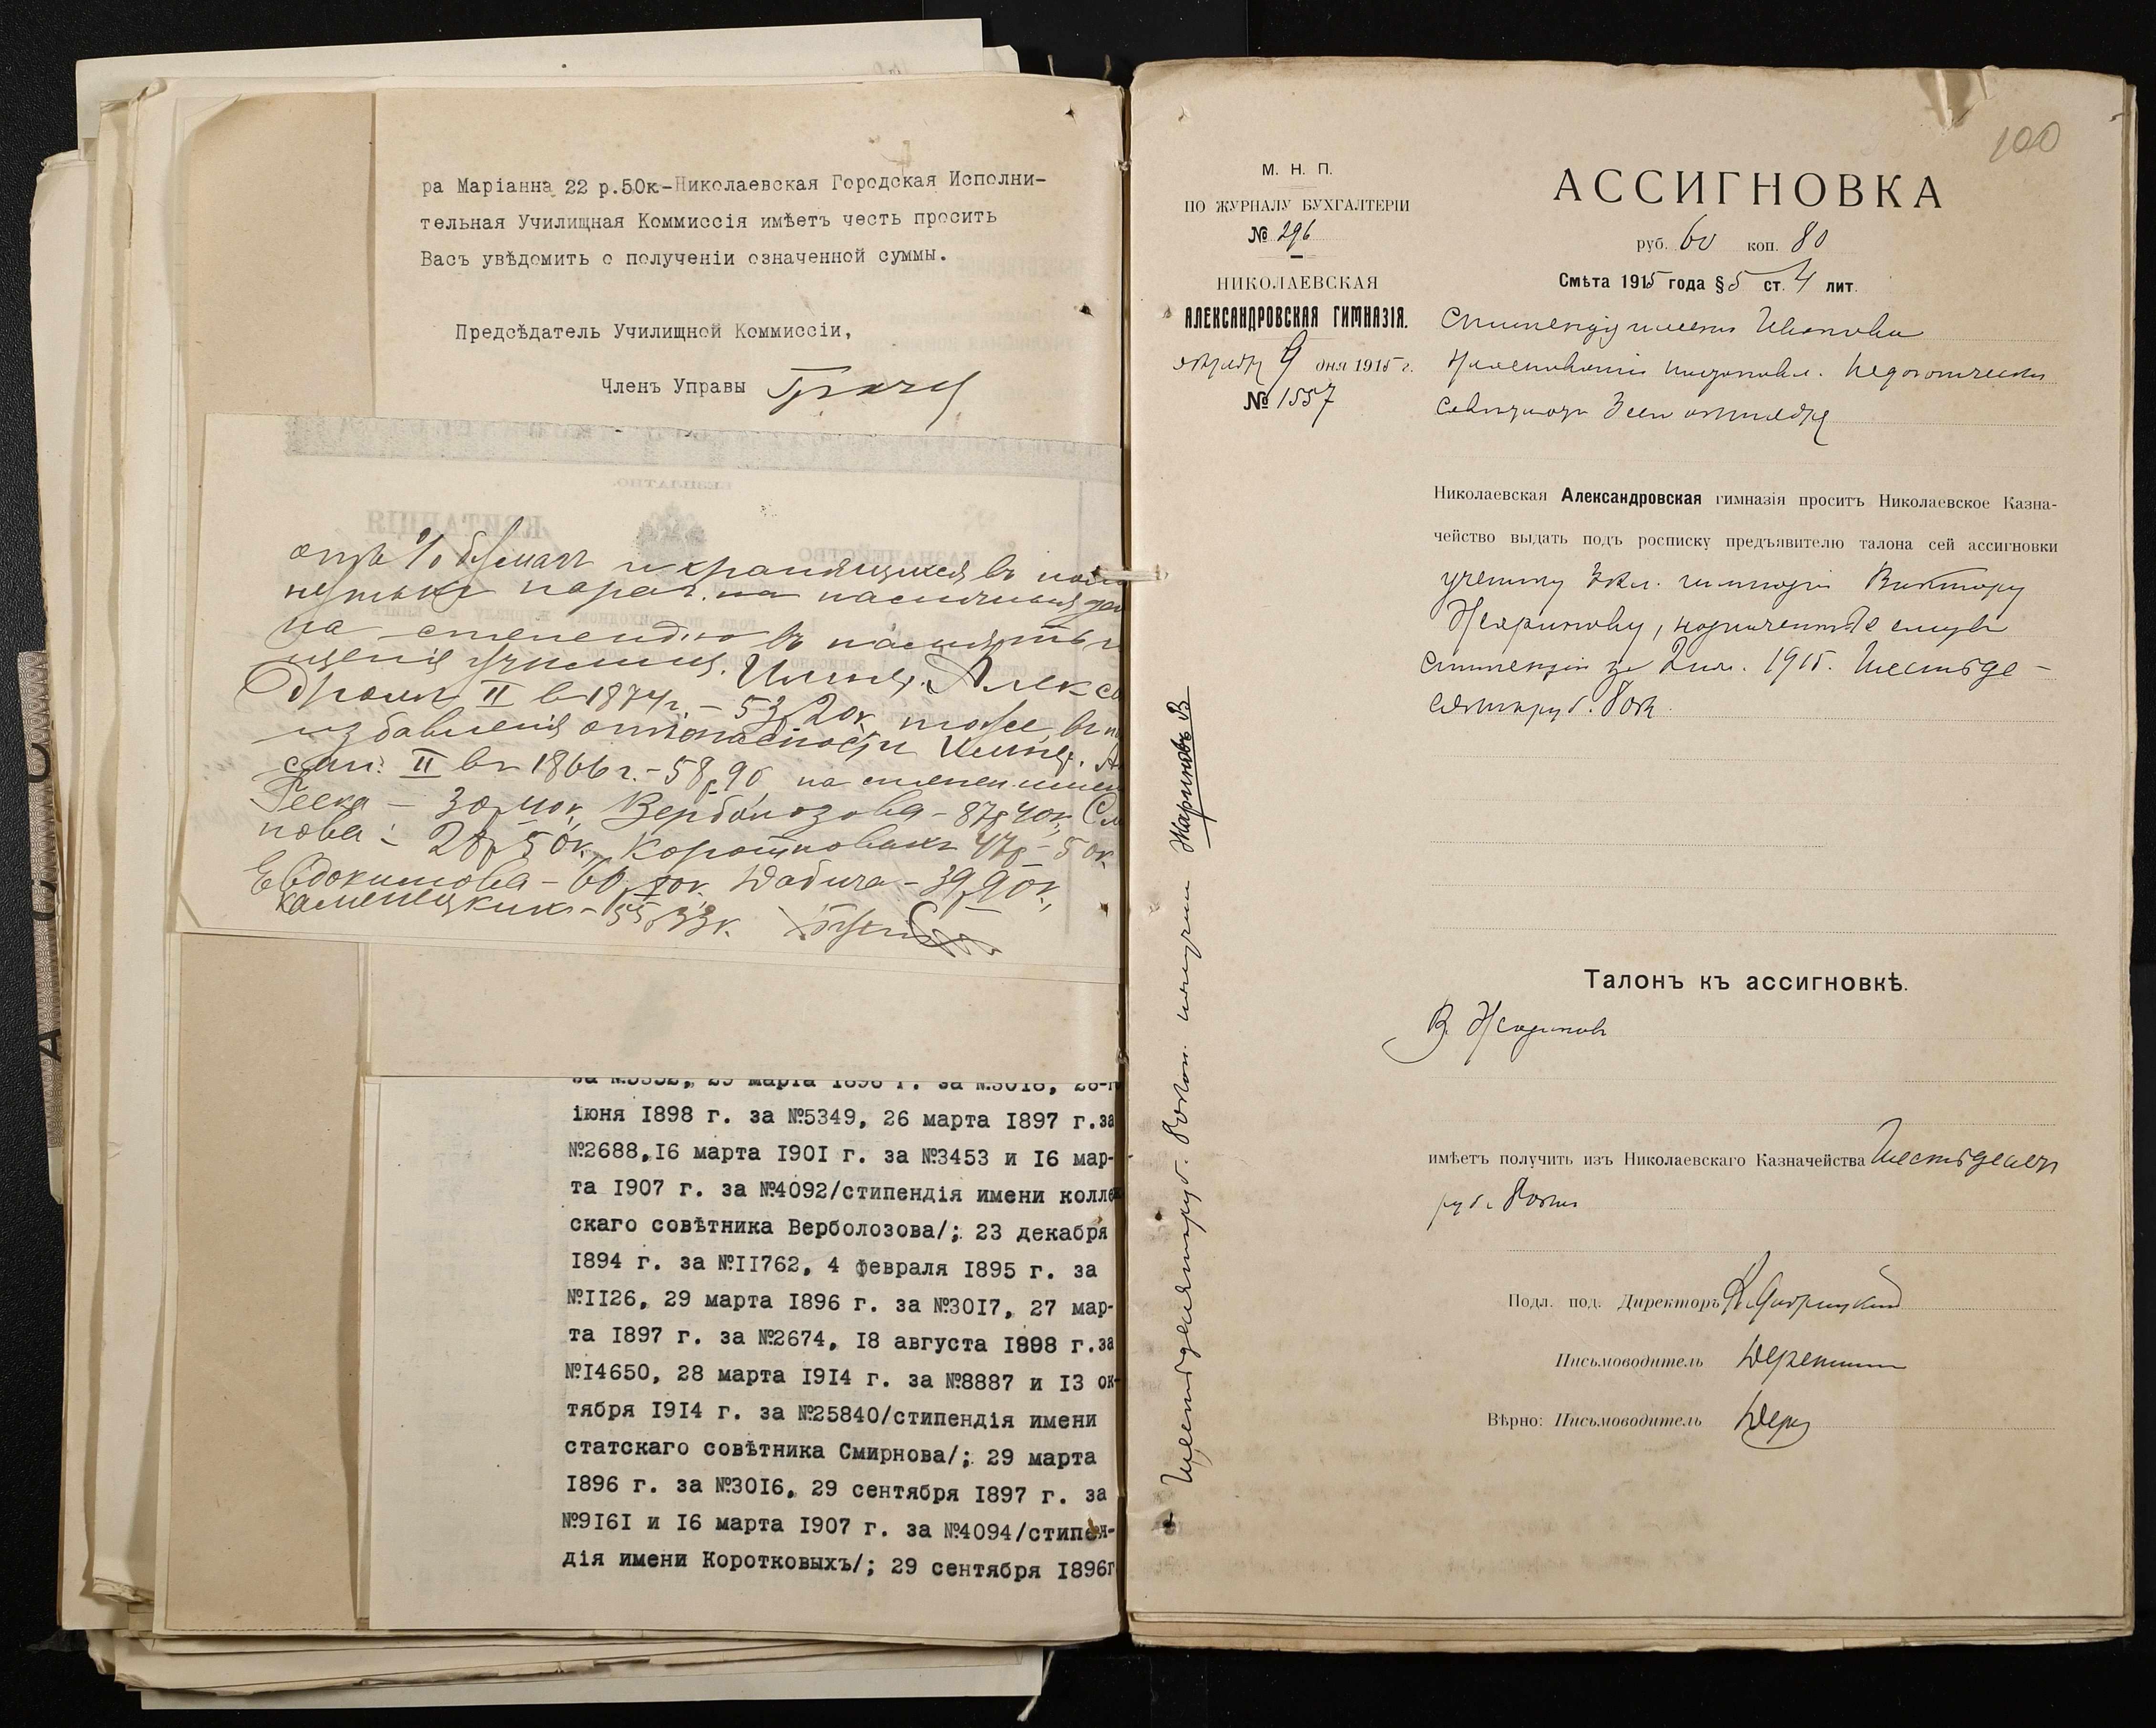 ра Маріанна 22 р.50к-Николаевская Городская Исполни-
тельная Училищная Коммиссія имѣетъ честь просить
Васъ увѣдомить о полученіи означенной суммы.
Предсѣдатель Училищной Коммиссіи,
Членъ Управы
КВИТАНЦІЯ
КАЗНАЧЕЙСТВО
отъ % бумагъ и хранящихся въ
на стипендію въ память
училища. Импер. Алекс
II въ 1874г. - 53р 20к тоже, въ
избавленія отъ опасности Импер. А
сан. II въ 1866 г. - 58р 90, на
- 30р 40к, Верболозова - 87р 40к, См
нова - 28р 50к, Коротковыхъ 47р - 50к
Евдокимова - 60р 80к, - 39р 90к,
Каменецкихъ - 55р 33к.
іюня 1898 г. за №5349, 26 марта 1897 г.за
№2688,16 марта 1901 г. за №3453 и 16 мар-
та 1907 г. за №4092/стипендія имени колле
скаго совѣтника Верболозова/; 23 декабря
1894 г. за №11762, 4 февраля 1895 г. за
№1126, 29 марта 1896 г. за №3017, 27 мар-
та 1897 г. за №2674, 18 августа 1898 г.за
№14650, 28 марта 1914 г. за №8887 и 13 ок-
тября 1914 г. за №25840/стипендія имени
статскаго совѣтника Смирнова/; 29 марта
1896 г. за №3016, 29 сентября 1897 г. за
№9161 и 16 марта 1907 г. за №4094/стипен-
дія имени Коротковыхъ/; 29 сентября 1896г
100
М. Н. П.
ПО ЖУРНАЛУ БУХГАЛТЕРІИ
№ 296
НИКОЛАЕВСКАЯ
АЛЕКСАНДРОВСКАЯ ГИМНАЗІЯ.
октября 9 дня 1915 г.
№ 1557
АССИГНОВКА
руб. 60 коп. 80
Смѣта 1915 года § 5 ст. 4 лит.
Стипендія имени
постановл. Педагогическ
Николаевская Александровская гимназія проситъ Николаевское Казна-
чейство выдать подъ росписку предъявителю талона сей ассигновки
ученику 3 кл. гимназіи Виктору
Жаринову, назначенные ему въ
стипендію за 2 пол. 1915. Шестьде-
сятъ руб. 80 к.
Талонъ къ ассигновкѣ.
В. Жаринов
имѣетъ получить изъ Николаевскаго Казначейства Шестьдесят
руб. 80 коп
Подл. под. Директоръ
Письмоводитель
Вѣрно: Письмоводитель
Шестьдесятъ руб. 80 коп. получилъ Жариновъ В